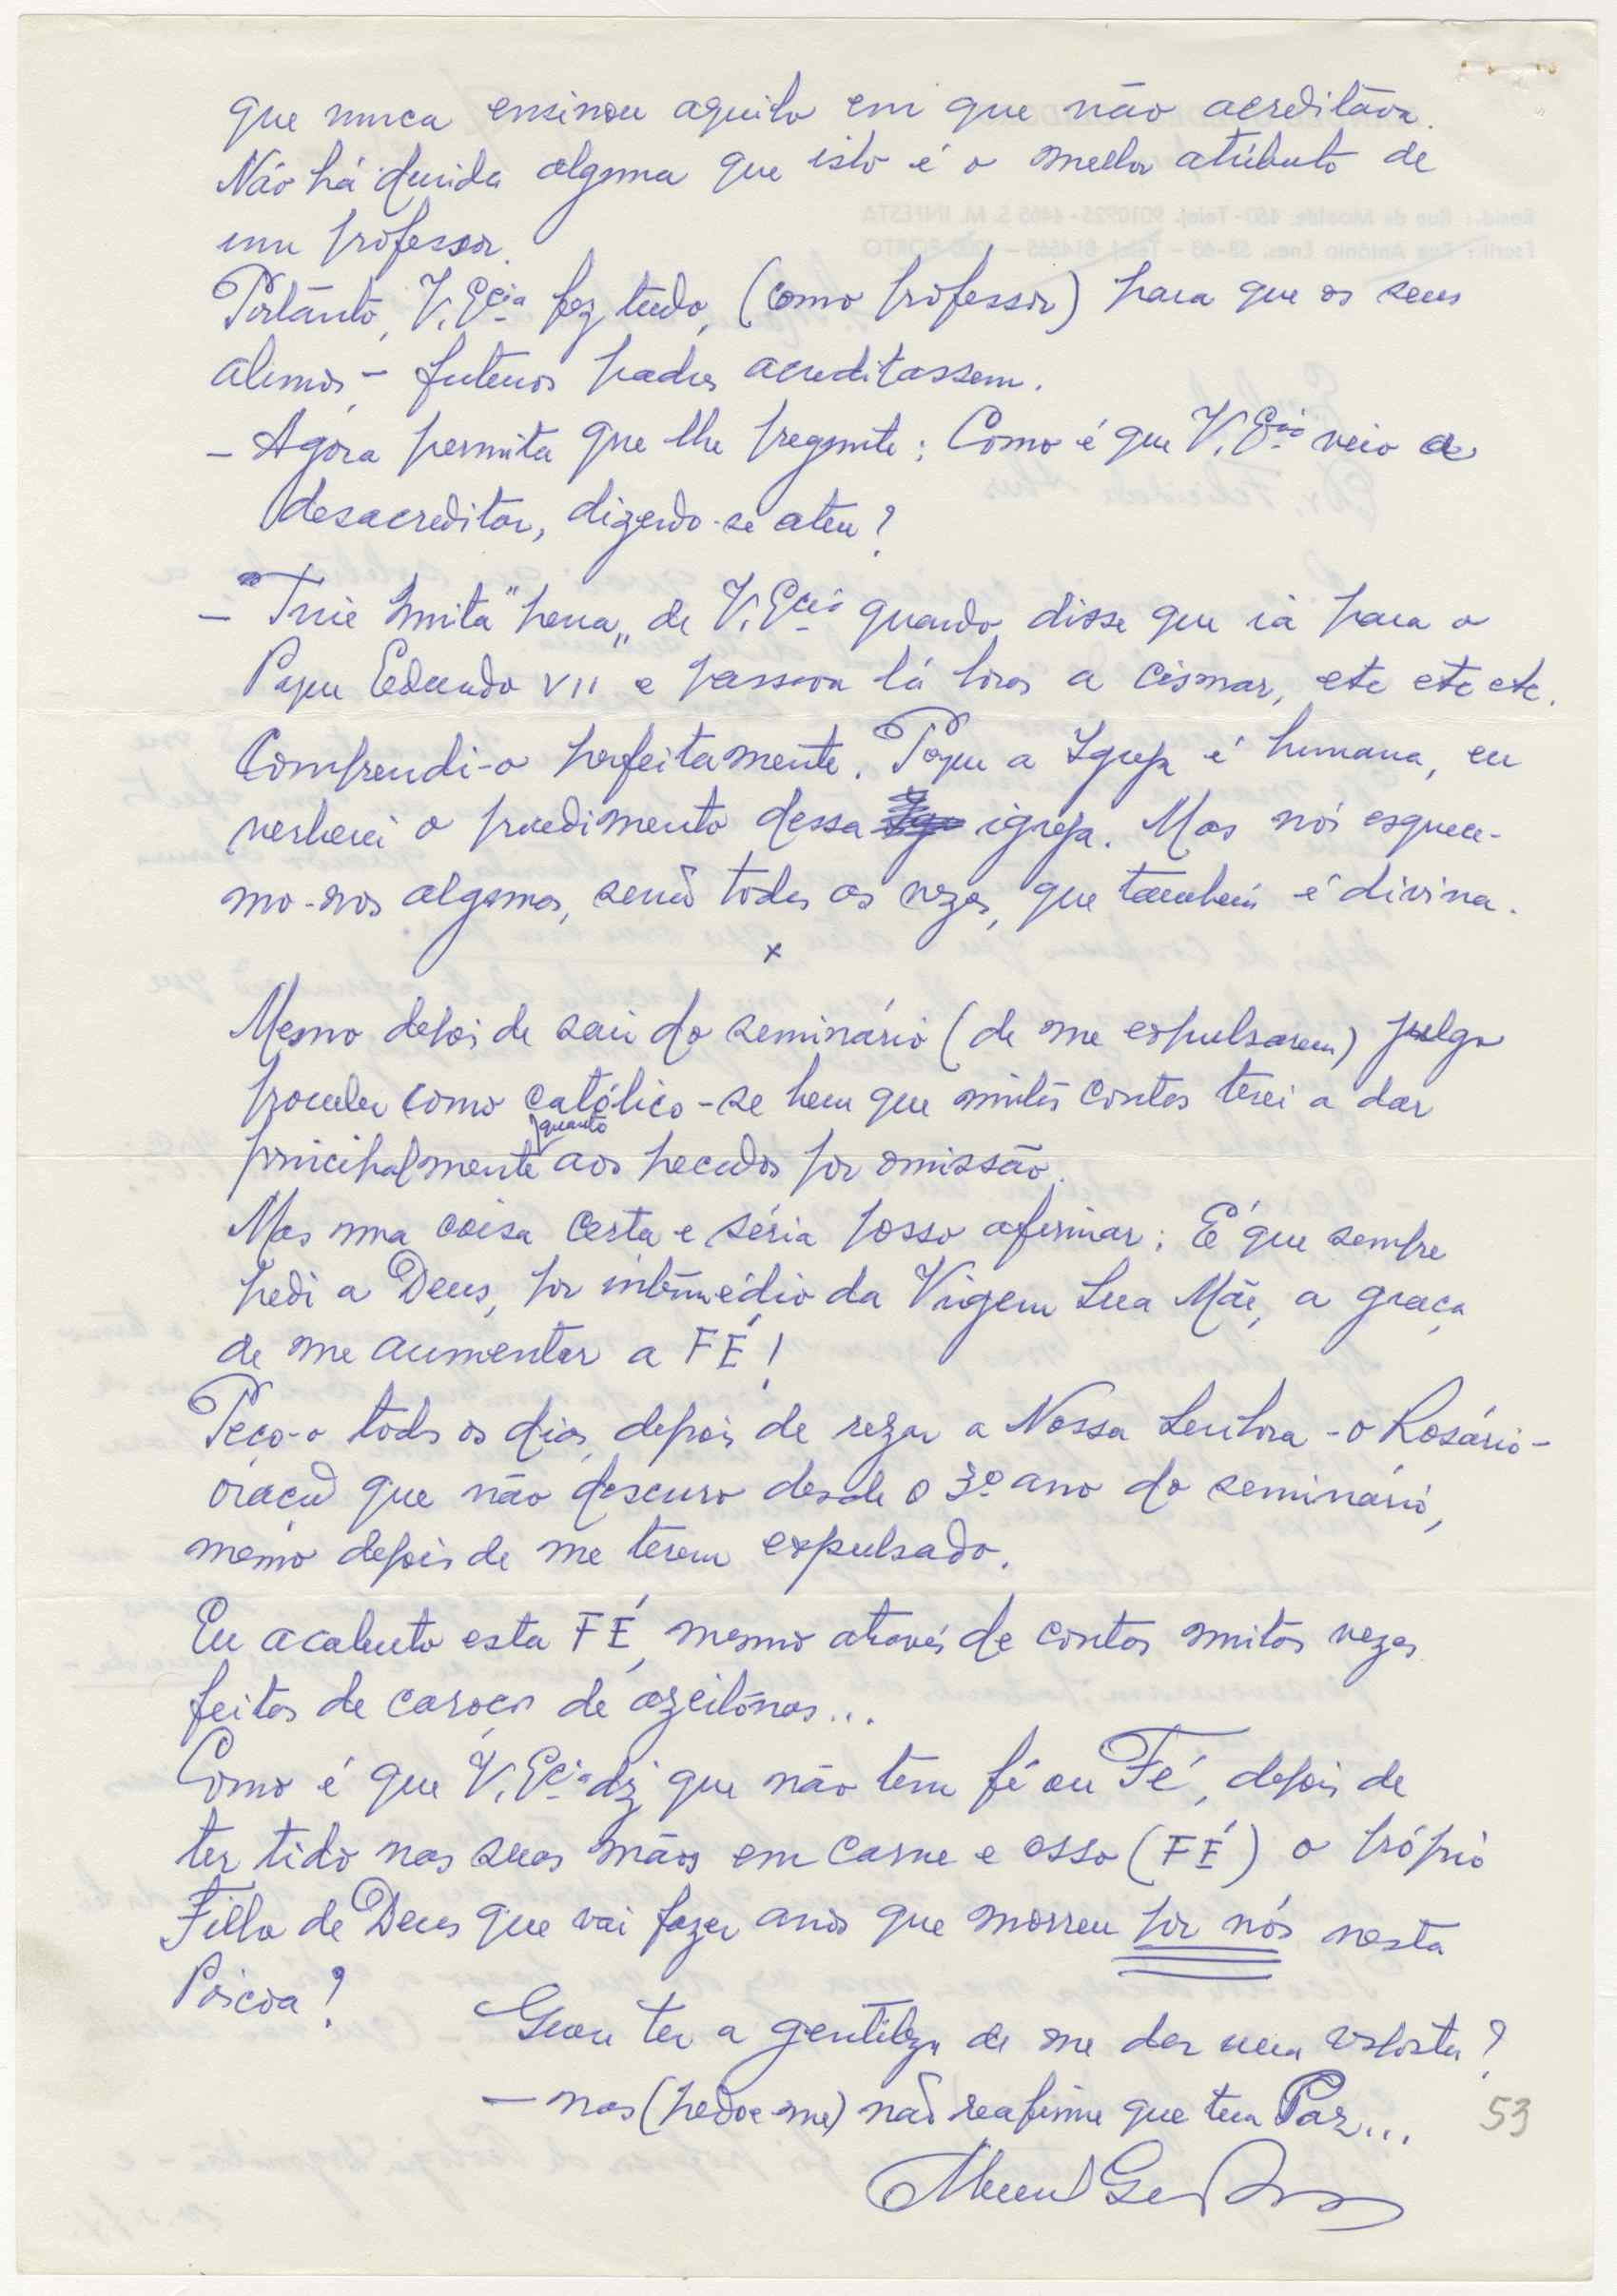 que nunca ensinou aquilo em que não acreditava.
Não há duvida alguma que isto é o melhor atributo de
um professor.
Portanto, V. Ecia fez tudo, (como professor) para que os seus
alunos, - futuros padres acreditassem.
- Agora permita que lhe pregunte: Como é que V. Ecia veio a
desacreditar, dizendo-se ateu?
- Tive muita "pena" de V. Ecia quando disse que ia para o
Parqu Eduardo VII e passava lá horas a cismar, etc etc etc.
Comprendi-o perfeitamente. Porque a Igreja é humana, eu
verberei o procedimento dessa igreja. Mas nós esquece-
mo-nos algumas, senão todas as vezes, que também é divina.
x
Mesmo depois de sair do seminário (de me expulsarem) julgo
proceder como católico - se bem que muitas contas terei a dar
principalmente quanto aos pecados por omissão.
Mas uma coisa certa e séria posso afirmar: É que sempre
pedi a Deus, por intermédio da Virgem Sua Mãe, a graça
de me aumentar a FÉ!
Peço-o todos os dias, depois de rezar a Nossa Senhora - o Rosário -
oração que não descuro desde o 3º ano do seminário,
mesmo depois de me terem expulsado.
Eu acalento esta FÉ, mesmo através de contas muitas vezes
feitas de caroços de azeitonas...
Como é que V. Ecia diz que não tem fé ou Fé, depois de
ter tido nas suas mãos em carne e osso (FÉ) o próprio
Filho de Deus que vai fazer anos que morreu por nós nesta
Páscoa?
Quer ter a gentileza de me dar uma resposta?
- mas (perdoe-me) não reafirme que tem Paz...
53